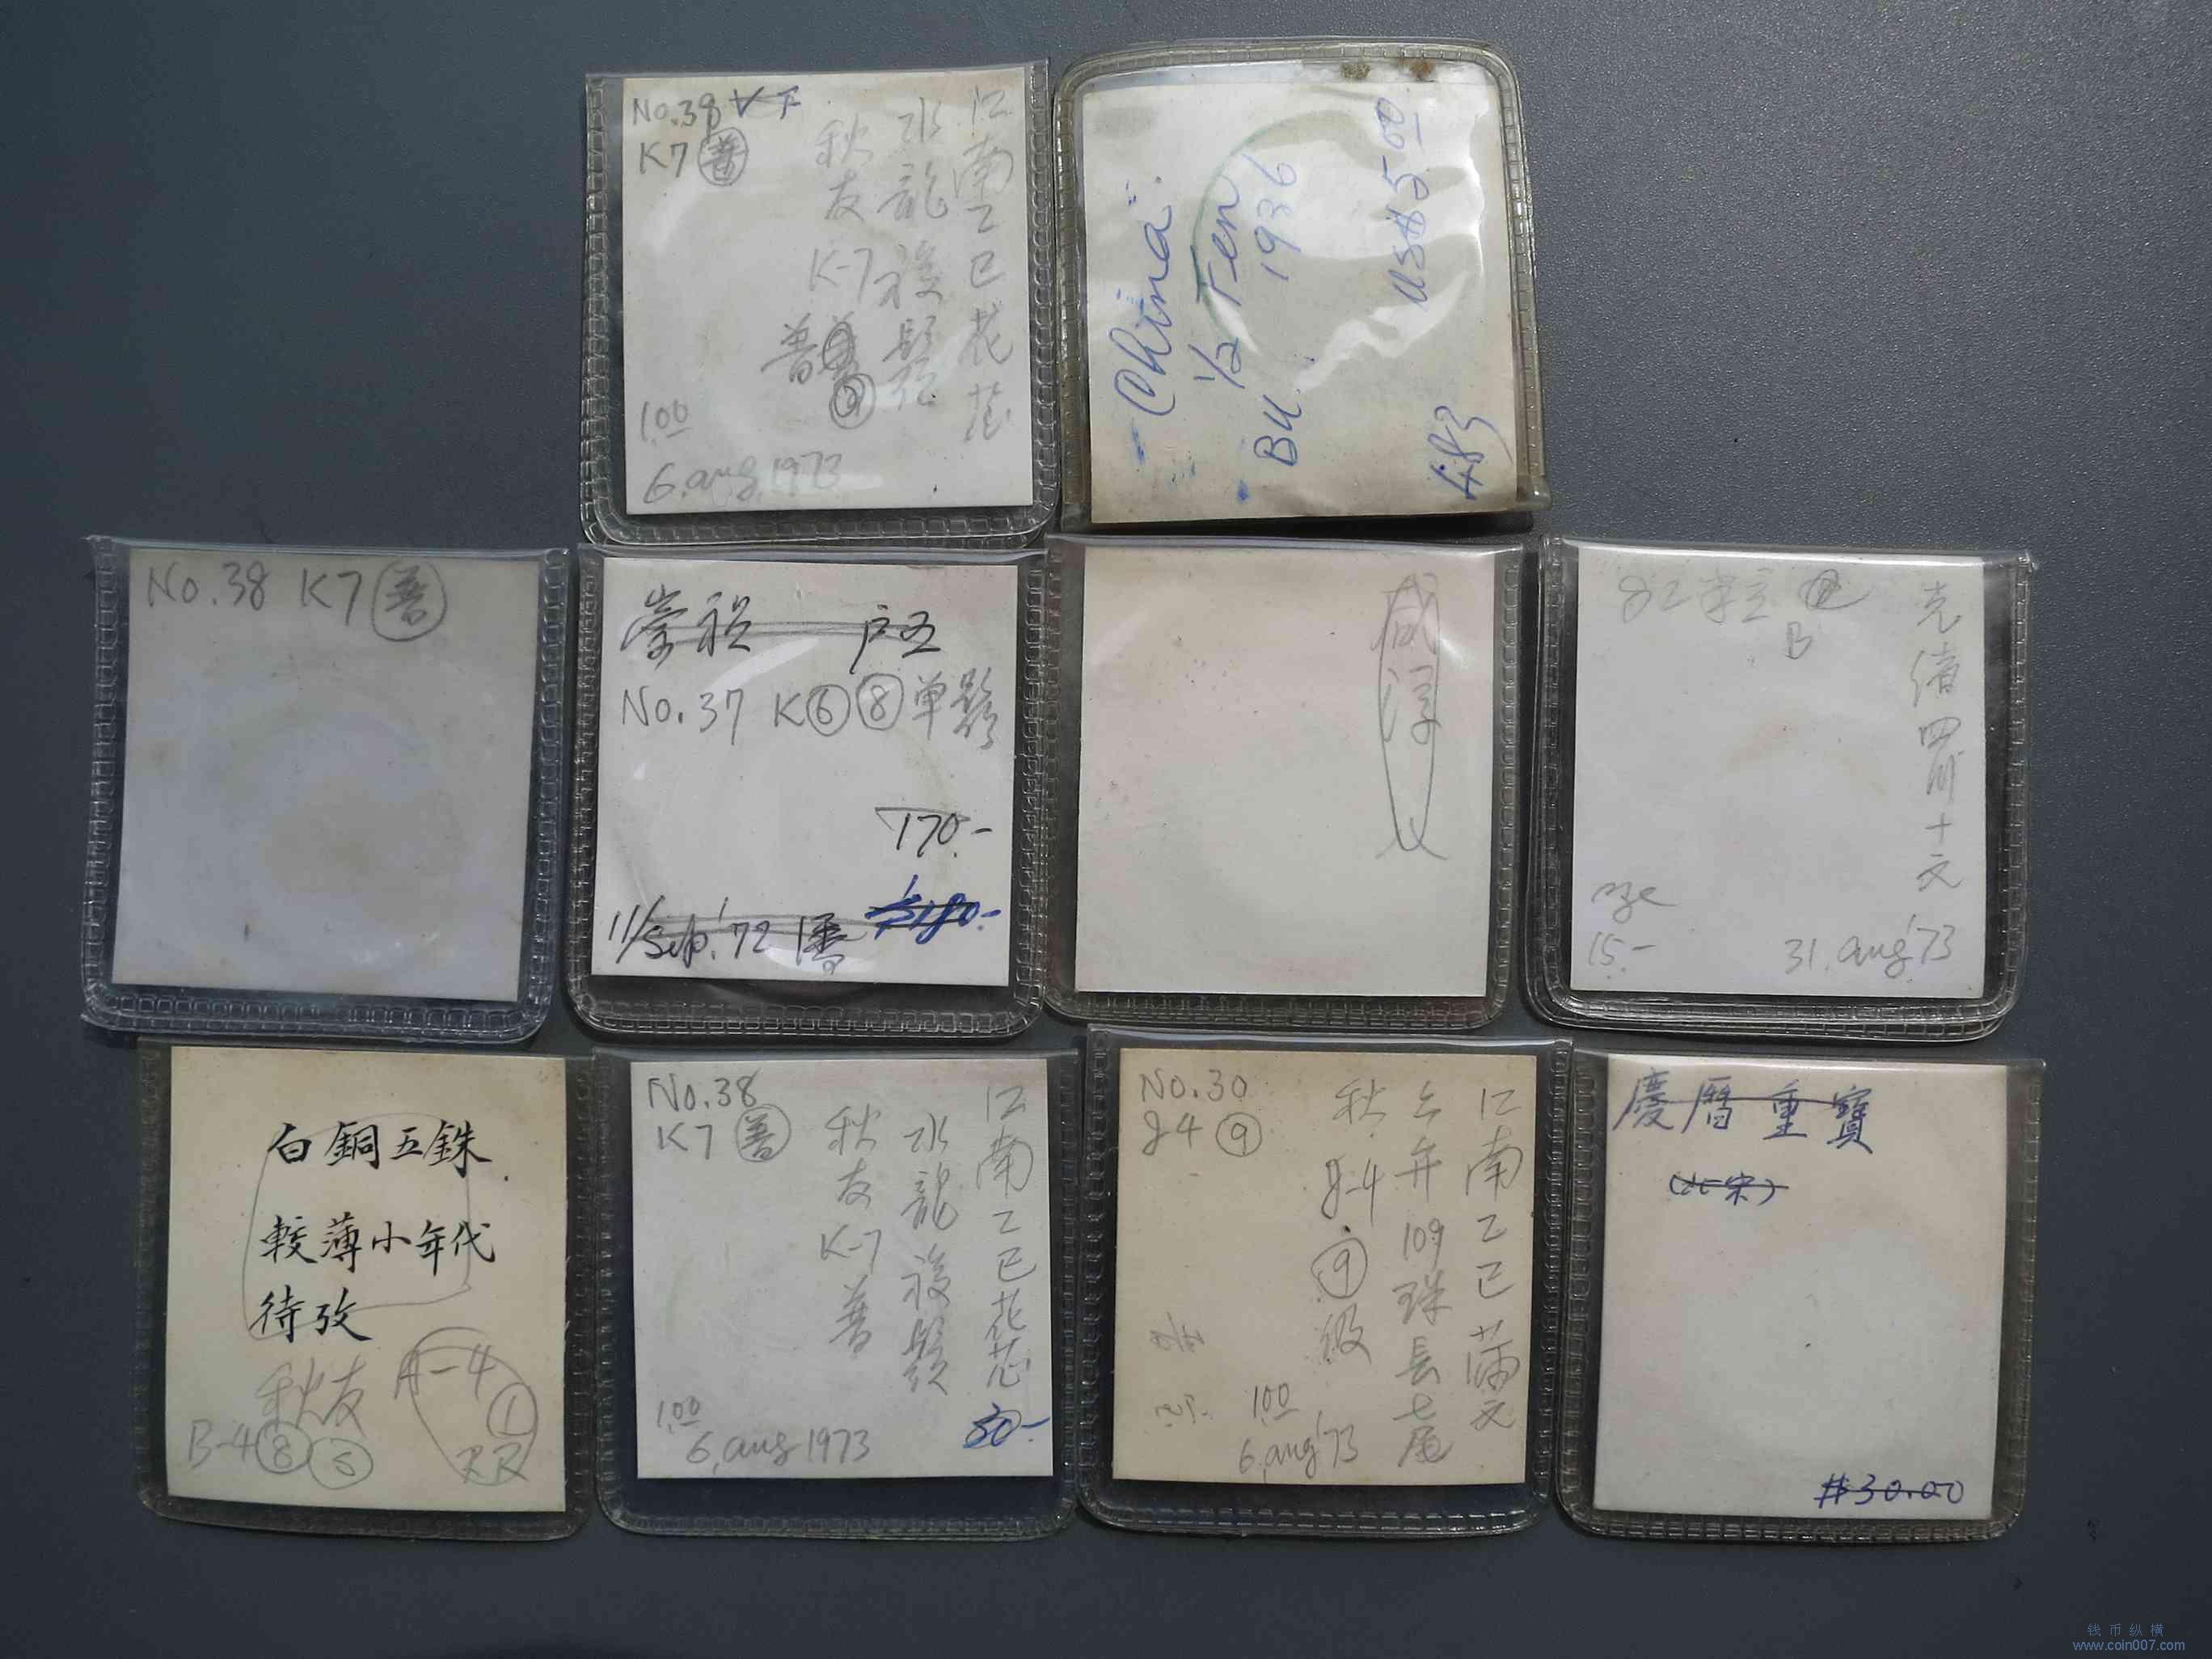 No.38 VF
K7 普
江南乙巳花芯
水龍複鬚
秋友
K-7
普
1.00
6.aug.1973
"China"
1/2 Ten
1936
BU
US$5.00
483
No.38 K7 普
崇禎 户五
No.37 K⑥⑧单鬚
170.-
11/Sep.'72
$180.-
咸淳
光绪四川十元
B
15.-
31.aug'73
白銅五銖
較薄小年代
待攷
秋友
A-4
①
RR
B-4⑧⑤
No.38
K7 普
江南乙巳花芯
水龍複鬚
秋友
K-7
普
1.00
6.aug 1973
30-
No.30
J4 ⑨
江南乙巳
109珠長七尾
秋.
J-4
⑨級
1.00
6.aug'73
慶曆重寶
(北宋)
$30.00
钱币纵横
www.coin007.com